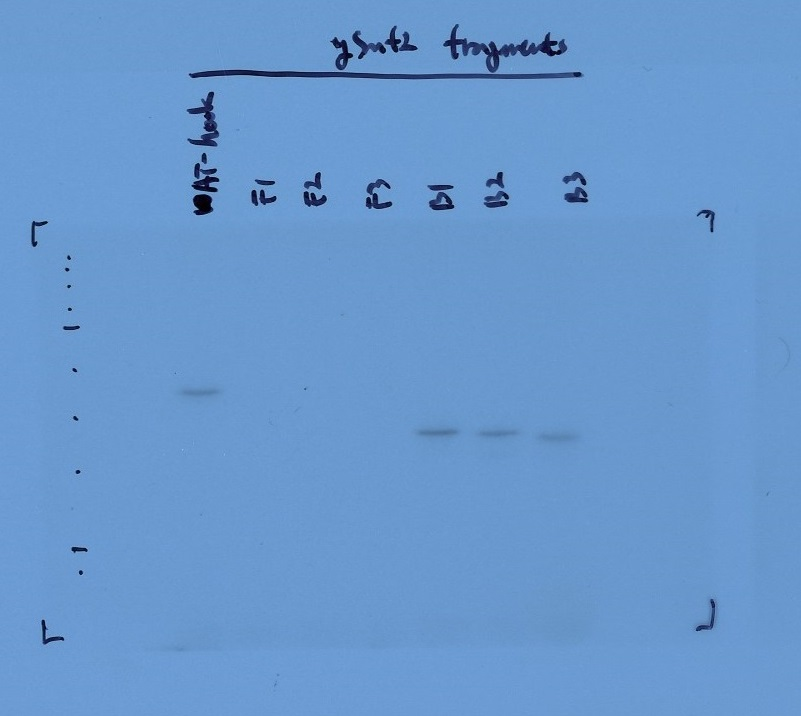 ySnt2 fragments
AT-hook F1 F2 F3 B1 B2 B3